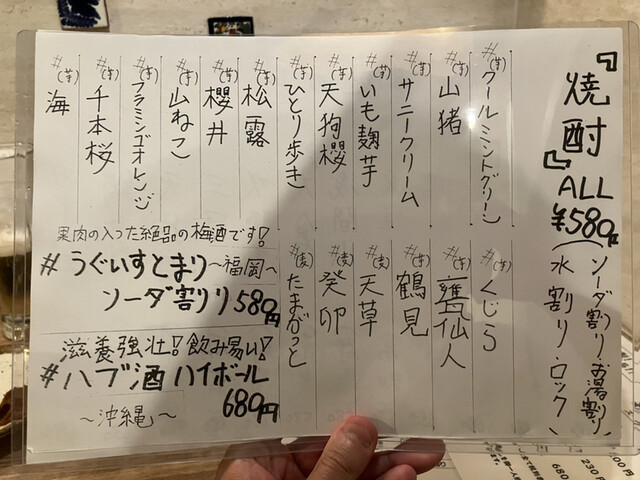 『焼酎』
ALL
¥580円
(ソーダ割り・お湯割り
水割り・ロック)
#(芋) クールミントグリーン
#(芋) 山猪
#(芋) サニークリーム
#(芋) いも麹芋
#(芋) 天狗櫻
#(芋) ひとり歩き
#(芋) 松露
#(芋) 櫻井
#(芋) 山ねこ
#(芋) フラミンゴオレンジ
#(芋) 千本桜
#(芋) 海
#(芋) くじら
#(芋) 甕仙人
#(芋) 鶴見
#(麦) 天草
#(麦) 癸卯
#(麦) たまがっと
果肉の入った絶品の梅酒です!
#うぐいすとまり〜福岡〜
ソーダ割り580円
滋養強壮!飲み易い!
#ハブ酒ハイボール
680円
〜沖縄〜
230円
680